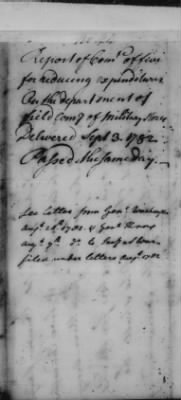 Report of Comee of five
for reducing expenditures
On the department of
field Comy of Military Stores
Delivered Sept 3. 1782
Passed the same day.
See letter from Genl Washington
Augt 28th 1782 & Genl Knox
augt 9th
filed under letters Augt 1782